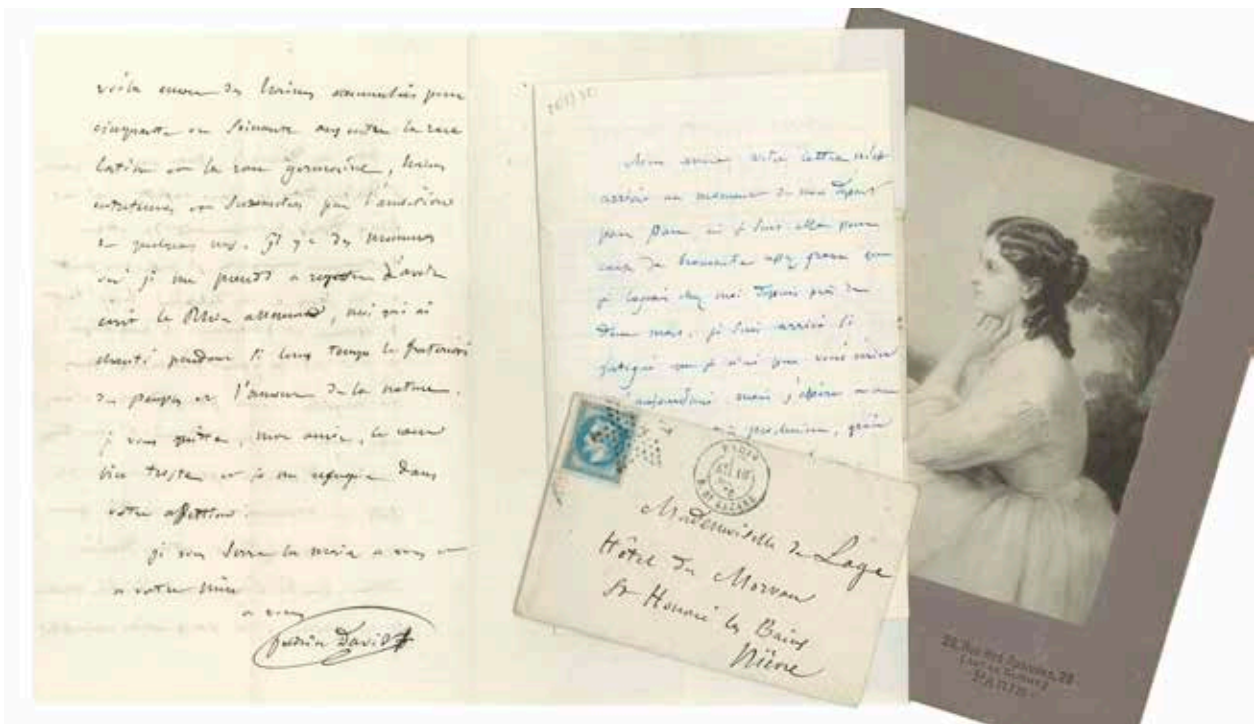 voila encore des haines accumulées pour
cinquante ou soixante ans entre la race
latine et la race germaine, haines
entretenues et surexcitées par l'ambition
de quelques uns. Il y a des moments
où je me prends à regretter d'avoir
écrit le Rhin allemand, moi qui ai
chanté pendant si long temps la fraternité
des peuples et l'amour de la nature.
je vous quitte, mon amie, le cœur
bien triste et je me refugie dans
votre affection.
je vous serre la main a vous et
a votre mère
a vous
félicien David
Mon amie, votre lettre m'est
arrivée au moment de mon départ
pour Paris, où je suis allé pour
cause de bronchite assez grave que
chez moi depuis près de
d'un mois. je suis arrivé si
fatigué que je n'ai pu vous écrire
mais j'espère
prochaine, grâce
PARIS
R. ST LAZARE
Mademoiselle de Lage
Hôtel du Morvan
St Honoré les Bains
Nièvre
PARIS